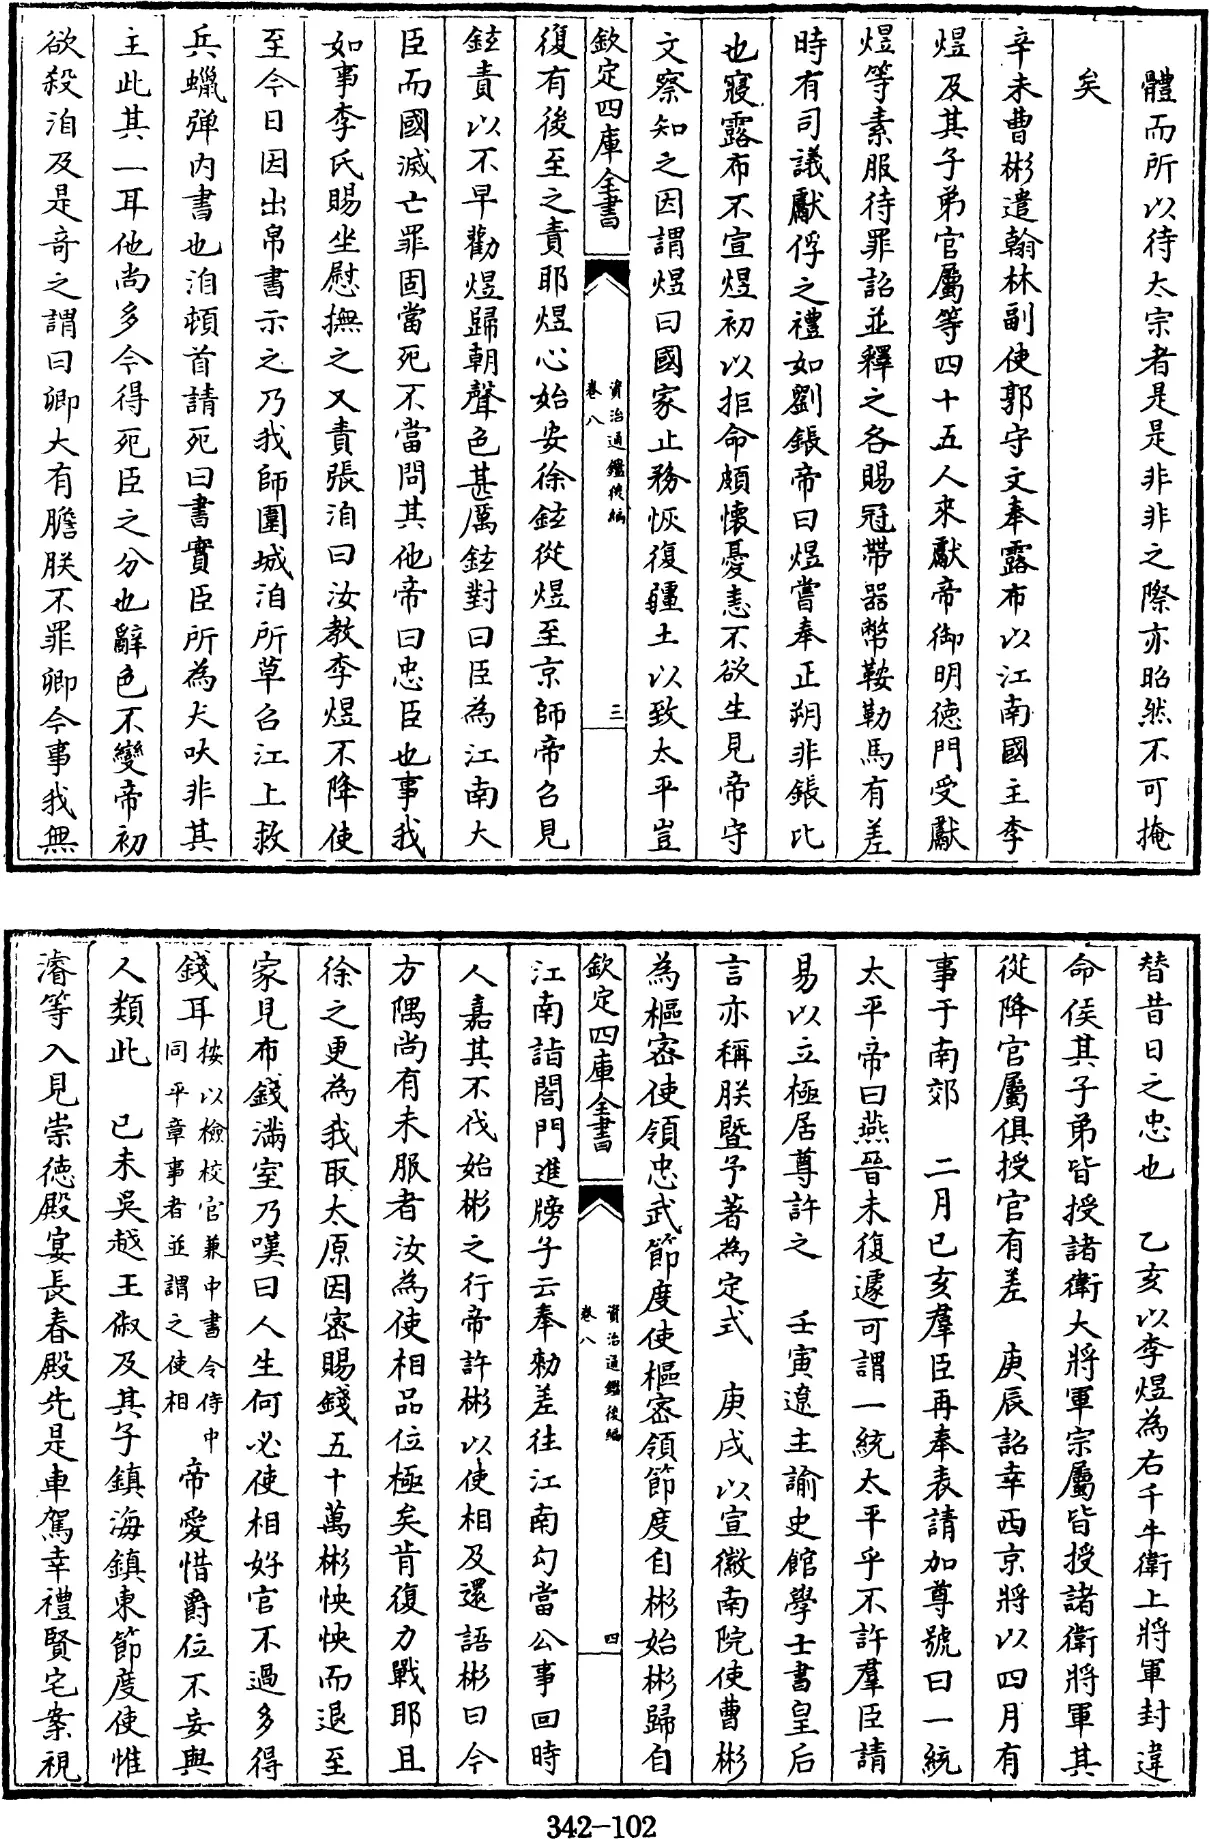 體而所以待太宗者是是非非之際亦昭然不可掩
矣
辛未曹彬遣翰林副使郭守文奉露布以江南國主李
煜及其子弟官屬等四十五人來獻帝御明德門受獻
煜等素服待罪詔並釋之各賜冠帶器幣鞍勒馬有差
時有司議獻俘之禮如劉鋹帝曰煜嘗奉正朔非鋹比
也寢露布不宣煜初以拒命頗懷憂恚不欲生見帝守
文察知之因謂煜曰國家止務恢復疆土以致太平豈
欽定四庫全書
資治通鑑後編
卷八
三
復有後至之責耶煜心始安徐鉉從煜至京師帝召見
鉉責以不早勸煜歸朝聲色甚厲鉉對曰臣為江南大
臣而國滅亡罪固當死不當問其他帝曰忠臣也事我
如事李氏賜坐慰撫之又責張洎曰汝教李煜不降使
至今日因出帛書示之乃我師圍城洎所草召江上救
兵蠟彈內書也洎頓首請死曰書實臣所為犬吠非其
主此其一耳他尚多今得死臣之分也辭色不變帝初
欲殺洎及是奇之謂曰卿大有膽朕不罪卿今事我無
替昔日之忠也　乙亥以李煜為右千牛衛上將軍封違
命侯其子弟皆授諸衛大將軍宗屬皆授諸衛將軍其
從降官屬俱授官有差　庚辰詔幸西京將以四月有
事于南郊　二月已亥羣臣再奉表請加尊號曰一統
太平帝曰燕晉未復遽可謂一統太平乎不許羣臣請
易以立極居尊許之　壬寅遼主諭史館學士書皇后
言亦稱朕暨予著為定式　庚戌以宣徽南院使曹彬
為樞密使領忠武節度使樞密領節度自彬始彬歸自
欽定四庫全書
資治通鑑後編
卷八
四
江南詣閤門進牓子云奉勅差往江南勾當公事回時
人嘉其不伐始彬之行帝許彬以使相及還語彬曰今
方隅尚有未服者汝為使相品位極矣肯復力戰耶且
徐之更為我取太原因密賜錢五十萬彬怏怏而退至
家見布錢滿室乃嘆曰人生何必使相好官不過多得
錢耳按以檢校官兼中書令侍中同平章事者並謂之使相　帝愛惜爵位不妄與
人類此　已未吳越王俶及其子鎮海鎮東節度使惟
濬等入見崇德殿宴長春殿先是車駕幸禮賢宅案視
342-102